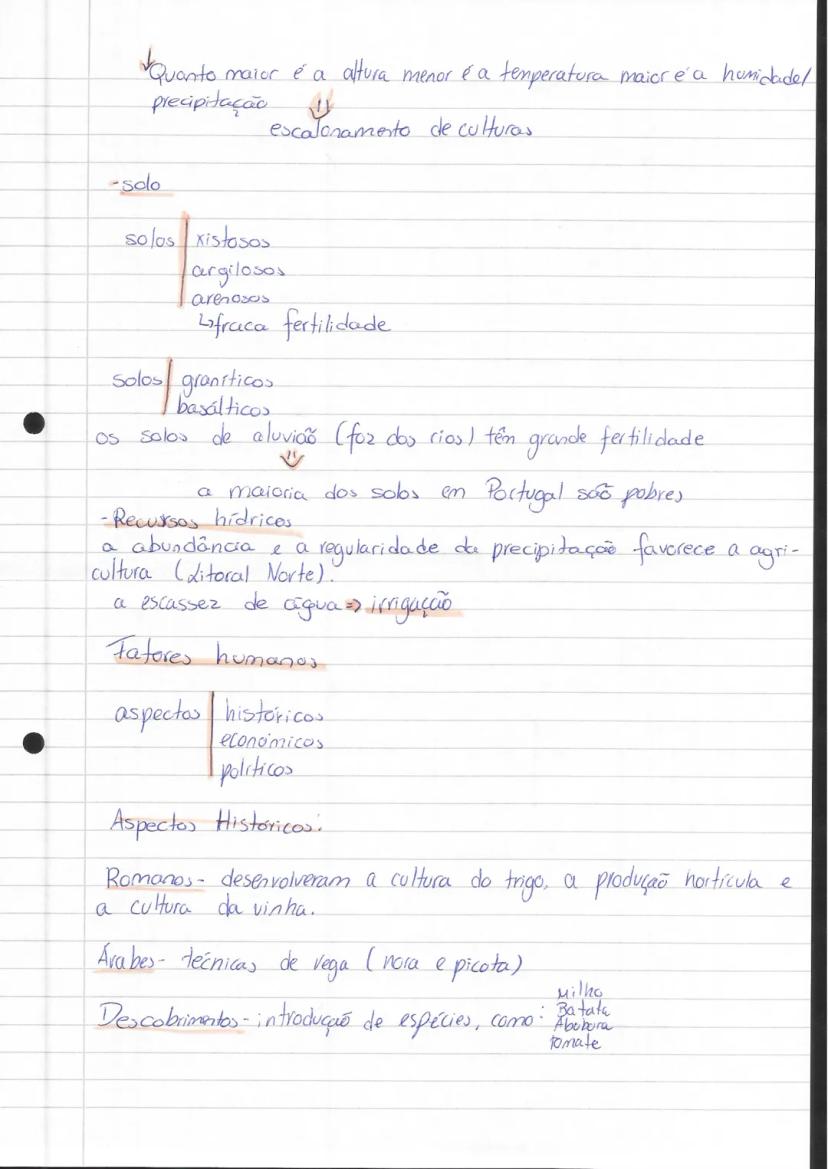 ↓Quanto maior é a altura menor é a temperatura maior é a humidade/
precipitação ⇓
escalonamento de culturas
-solo
solos | xistosos
argilosos
arenosos
↳fraca fertilidade
solos | graníticos
basálticos
os solos de aluvião (foz dos rios) têm grande fertilidade
⇓
a maioria dos solos em Portugal são pobres
-Recursos hídricos
a abundância e a regularidade da precipitação favorece a agri-
cultura (Litoral Norte).
a escassez de água => irrigação
Fatores humanos
aspectos | históricos
económicos
políticos
Aspectos Históricos:
Romanos- desenvolveram a cultura do trigo, a produção hortícula e
a cultura da vinha.
Árabes- técnicas de rega (nora e picota)
Descobrimentos- introdução de espécies, como: Milho
Batata
Abobora
tomate